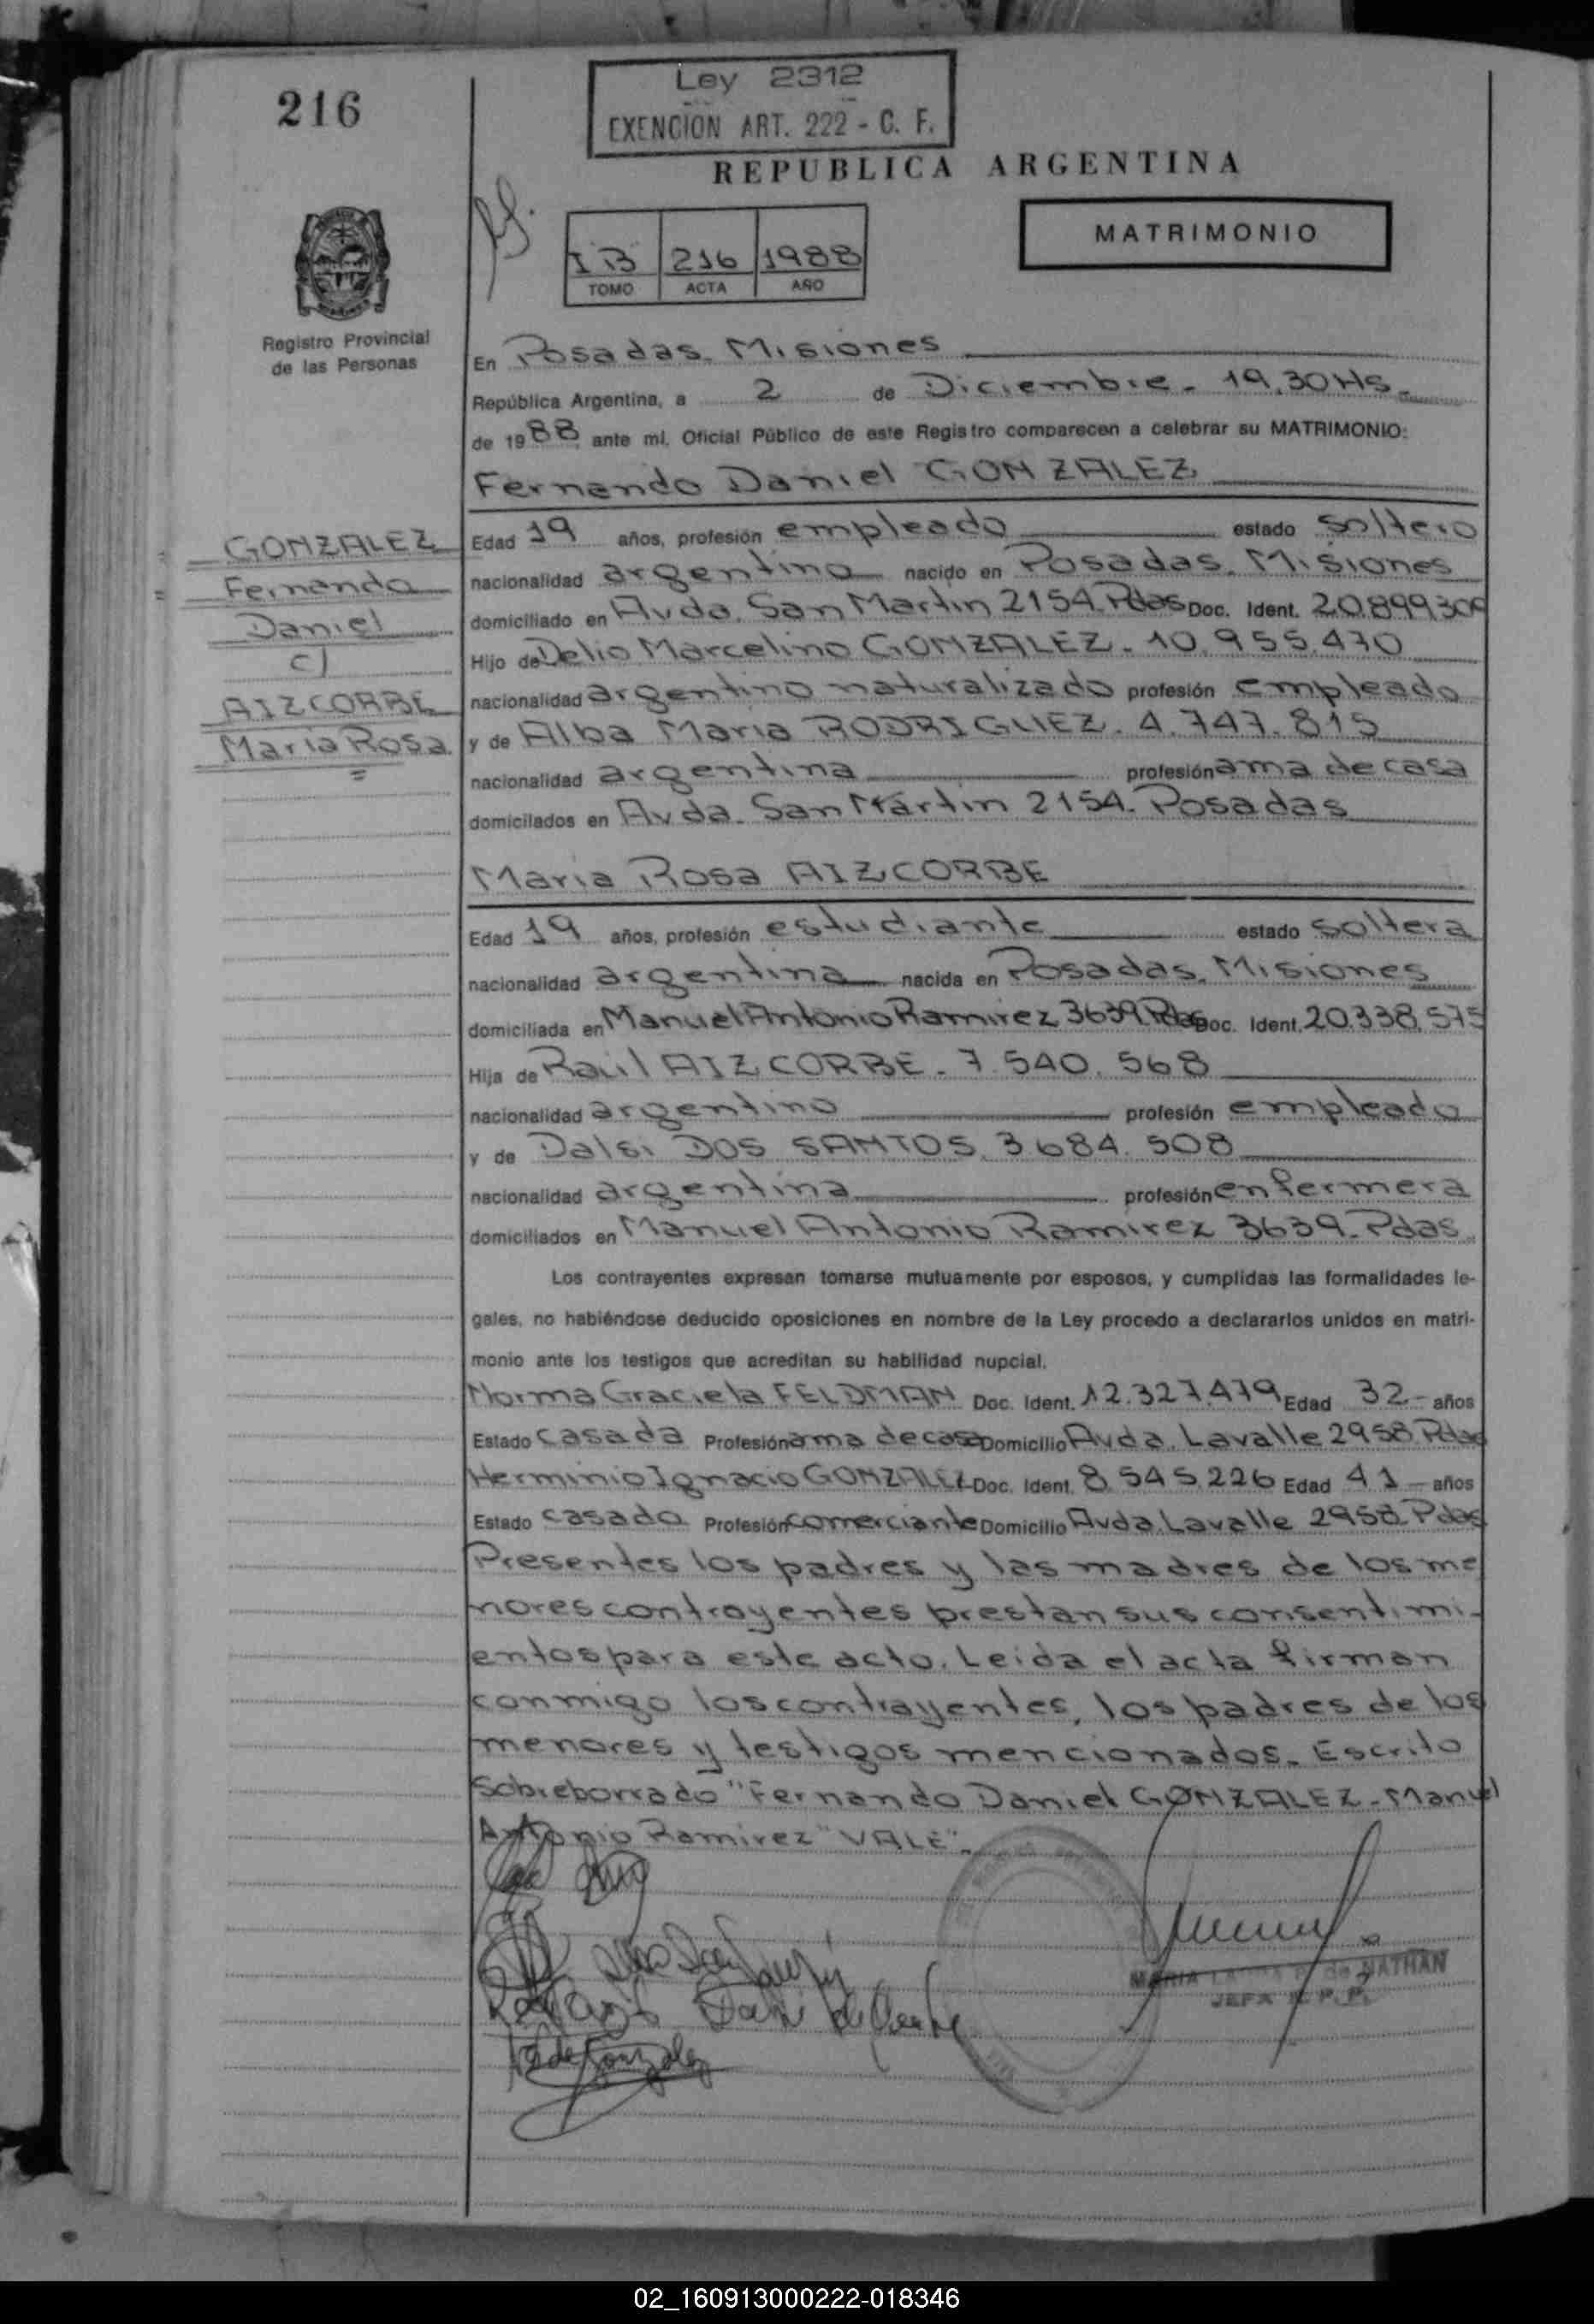 216
Ley 2312
EXENCION ART. 222 - C. F.
REPUBLICA ARGENTINA
MATRIMONIO
216 1988
TOMO ACTA AÑO
Registro Provincial
de las Personas
En Posadas. Misiones
República Argentina, a 2 de Diciembre. 19,30 Hs.
de 1988, ante mi, Oficial Público de este Registro comparecen a celebrar su MATRIMONIO:
Fernando Daniel GONZALEZ
GONZALEZ
Fernando
Daniel
c/
AIZCORBE
Maria Rosa
Edad 19 años, profesión empleado estado soltero
nacionalidad argentino nacido en Posadas. Misiones
domiciliado en Avda. San Martin 2154. Pdas Doc. Ident.
Hijo de Delio Marcelino GONZALEZ. 10.955.430
nacionalidad argentino naturalizado profesión empleado
y de Alba Maria RODRIGUEZ. 4.747.815
nacionalidad argentina profesión ama de casa
domiciliados en Avda. San Martin 2154. Posadas
Maria Rosa AIZCORBE
Edad 19 años, profesión estudiante estado soltera
nacionalidad argentina nacida en Posadas. Misiones
domiciliada en Manuel Antonio Ramirez 3639. Pdas Doc. Ident. 20.338.575
Hija de Raúl AIZCORBE. 7.540.568
nacionalidad argentino profesión empleado
y de Dalsi DOS SANTOS. 3.684.508
nacionalidad argentina profesión enfermera
domiciliados en Manuel Antonio Ramirez 3639. Pdas.
Los contrayentes expresan tomarse mutuamente por esposos, y cumplidas las formalidades le-
gales, no habiéndose deducido oposiciones en nombre de la Ley procedo a declararlos unidos en matri-
monio ante los testigos que acreditan su habilidad nupcial.
Norma Graciela FELDMAN Doc. Ident. 12.327.479 Edad 32 años
Estado casada Profesión ama de casa Domicilio Avda. Lavalle 2958. Pdas
Herminio Ignacio GONZALEZ Doc. Ident. 8.545.226 Edad 41 años
Estado casado Profesión comerciante Domicilio Avda. Lavalle 2958. Pdas
Presentes los padres y las madres de los me
nores contrayentes prestan sus consentimi-
entos para este acto. Leida el acta firman
conmigo los contrayentes, los padres de los
menores y testigos mencionados. Escrito
Sobreborrado "Fernando Daniel GONZALEZ - Manuel
Antonio Ramirez" VALE".
MARIA de NATHAN
JEFA
02_160913000222-018346